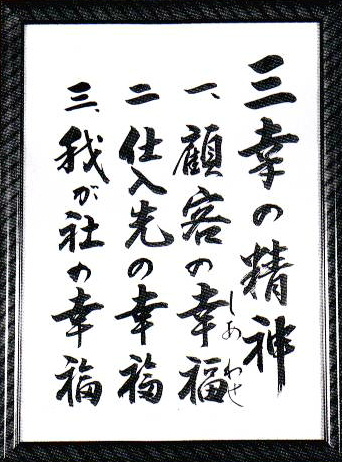 三幸の精神
一、顧客の幸福
しあわせ
二 仕入先の幸福
三、我が社の幸福